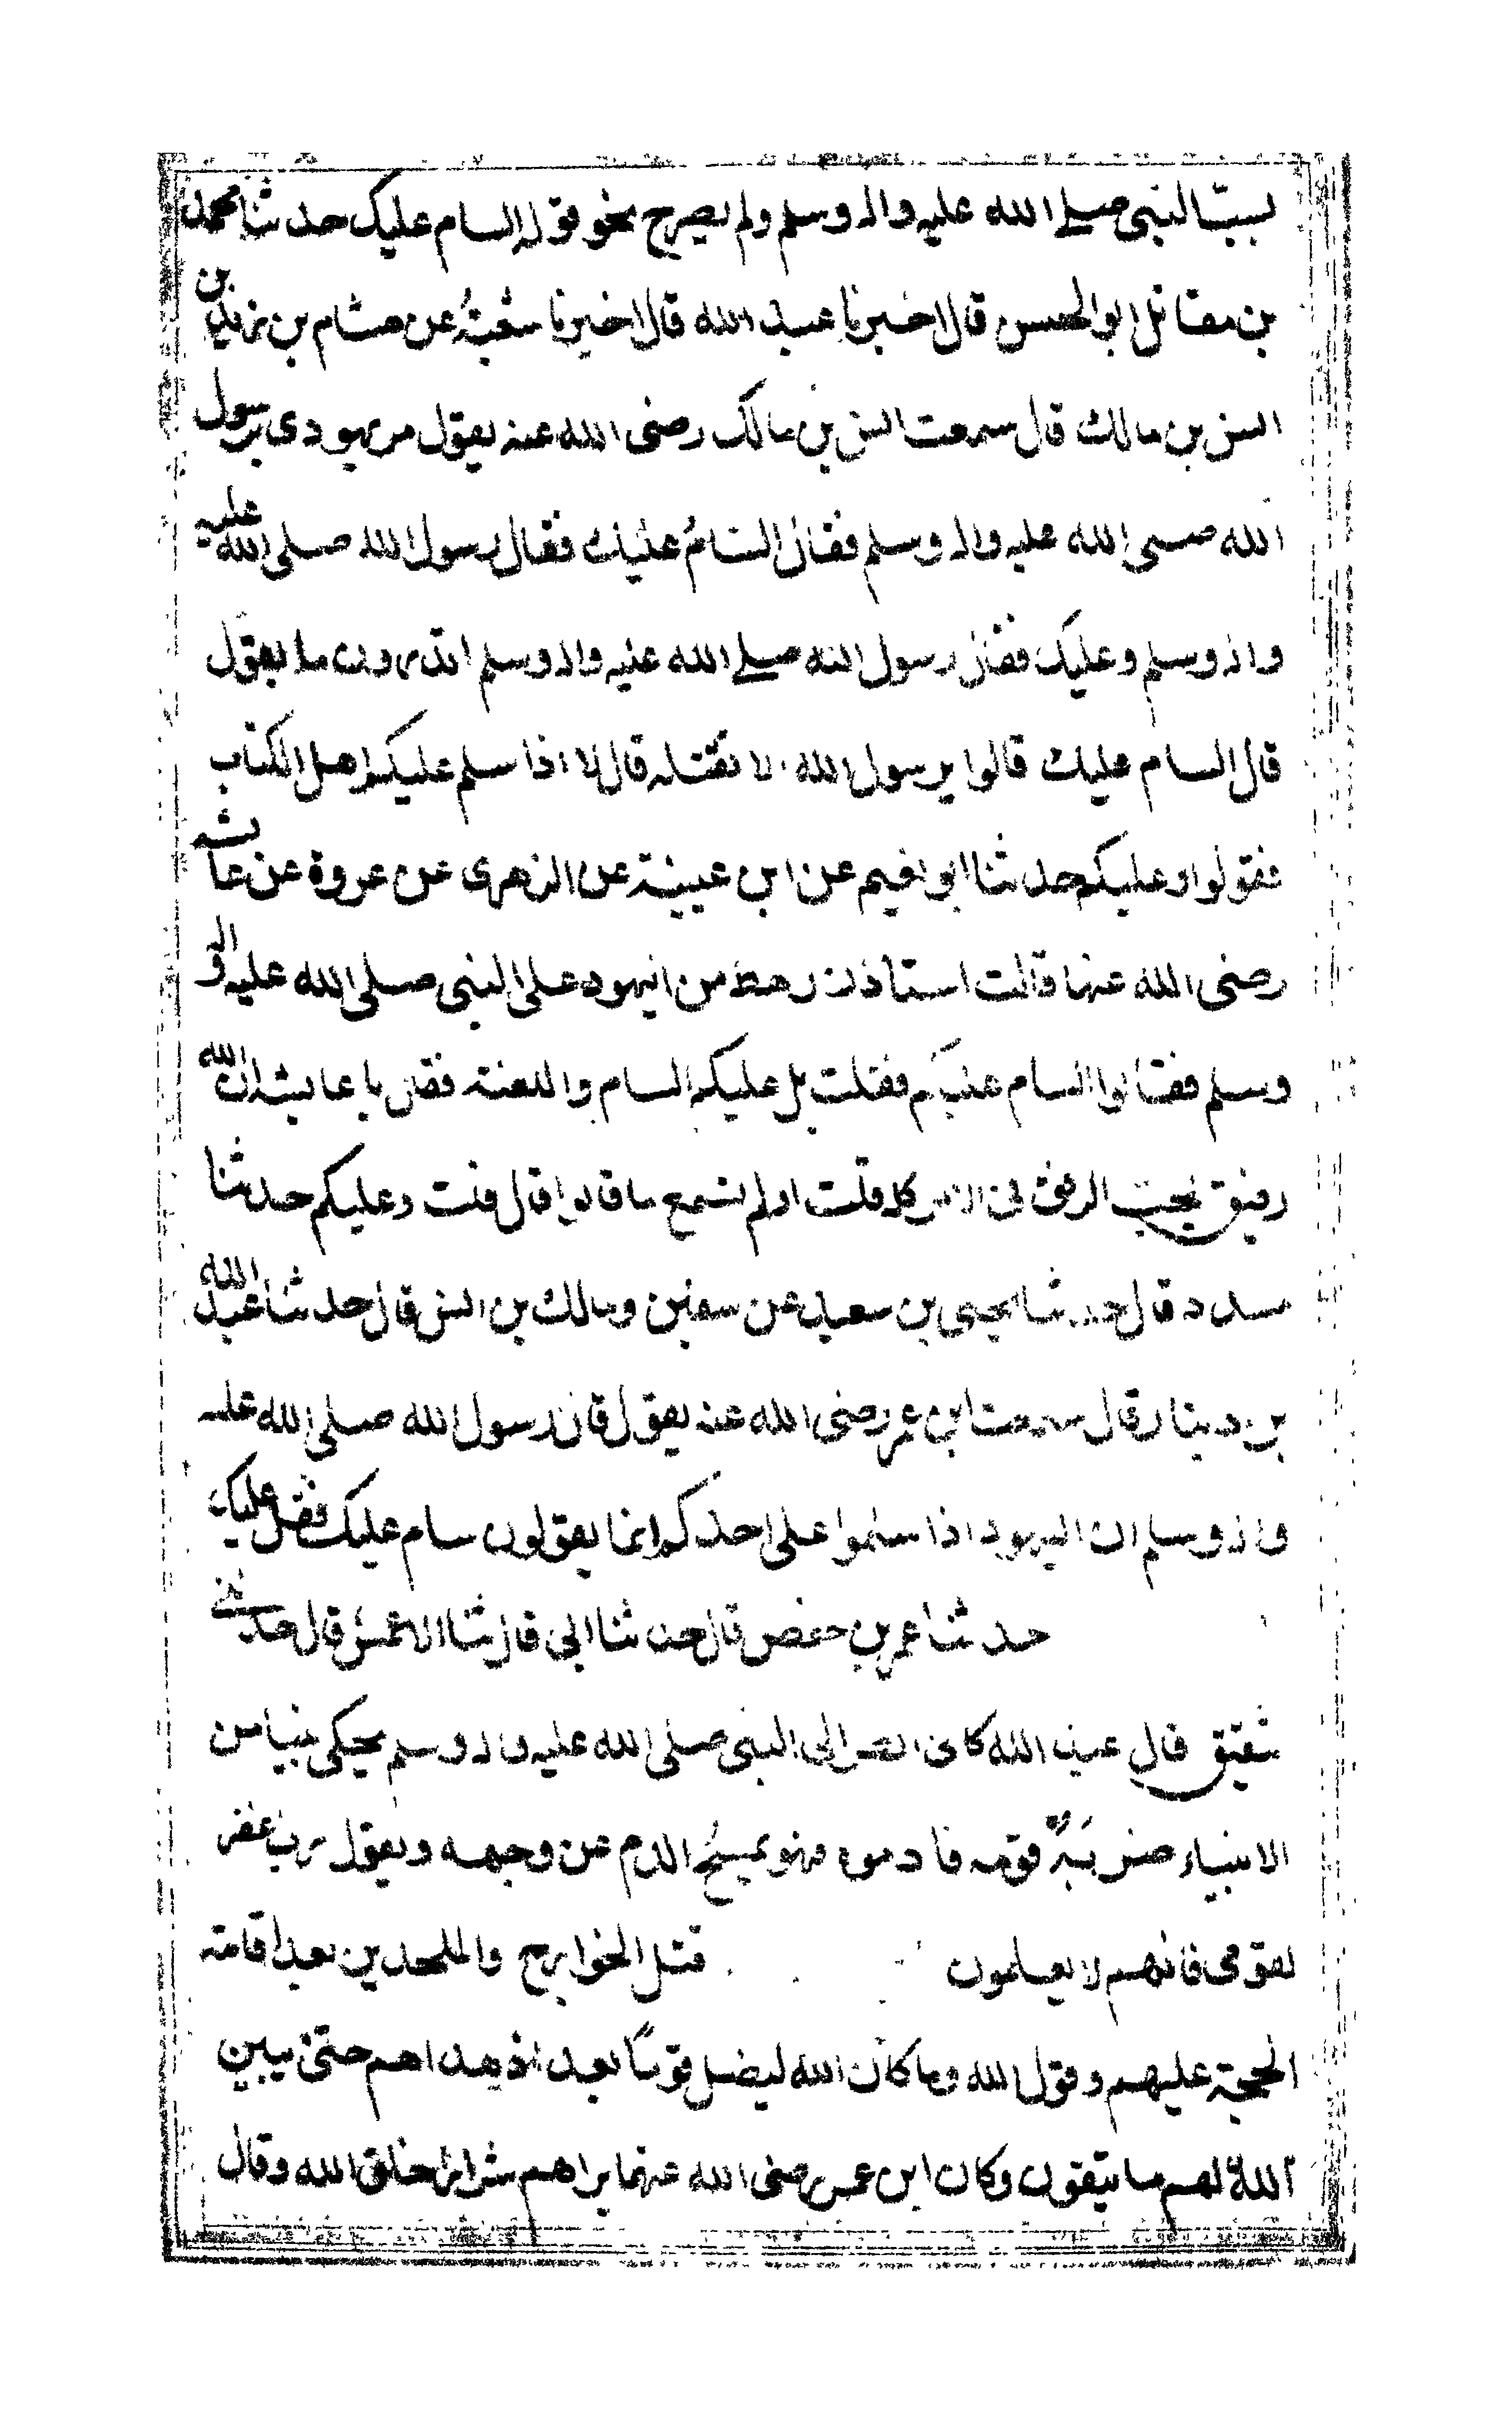 بسبّ النبى صلى الله عليه واله وسلم ولم يصرح نحو قوله السام عليك حدثنا محمد
بن مقاتل ابو الحسن قال اخبرنا عبد الله قال اخبرنا شعبة عن هشام بن زيد بن
انس بن مالك قال سمعت انس بن مالك رضى الله عنه يقول مر يهودى برسول
الله صلى الله عليه واله وسلم فقال السّامُ عليك فقال رسول الله صلى الله عليه
واله وسلم وعليك فقال رسول الله صلى الله عليه واله وسلم اتدرون ما يقول
قال السام عليك قالوا يرسول الله الا نقتله قال لا اذا سلم عليكم اهل الكتاب
فقولوا وعليكم حدثنا ابو نعيم عن ابن عيينة عن الزهرى عن عروة عن عائشه
رضى الله عنها قالت استأذن رهط من اليهود على النبى صلى الله عليه واله
وسلم فقالوا السام عليكم فقلت بل عليكم السام واللعنة فقال يا عايشه ان الله
رفيق يحب الرفق فى الامر كله قلت اولم تسمع ما قالوا قال قلت وعليكم حدثنا
مسدد قال حدثنا يحيى بن سعيد عن سفين ومالك بن انس قال حدثنا عبد الله
بن دينار قال سمعت ابن عمر رضى الله عنه يقول قال رسول الله صلى الله عليه
واله وسلم ان اليهود اذا سلموا على احدكم انما يقولون سام عليك فقل عليك
حدثنا عمر بن حفص قال حدثنا ابى قال ثنا الاعمش قال حدثنى
شقيق قال عبد الله كانى انظر الى النبى صلى الله عليه واله وسلم يحكى نبيا من
الانبياء ضربَهُ قومه فادموه فهو يمسحُ الدم عن وجهه ويقول رب اغفر
لقومى فانهم لا يعلمون قتل الخوارج والملحدين بعد اقامة
الحجة عليهم وقول الله وما كان الله ليضل قومًا بعد اذ هداهم حتى يبين
اللهُ لهم ما يتقون وكان ابن عمر رضى الله عنهما يراهم شرار خلق الله وقال